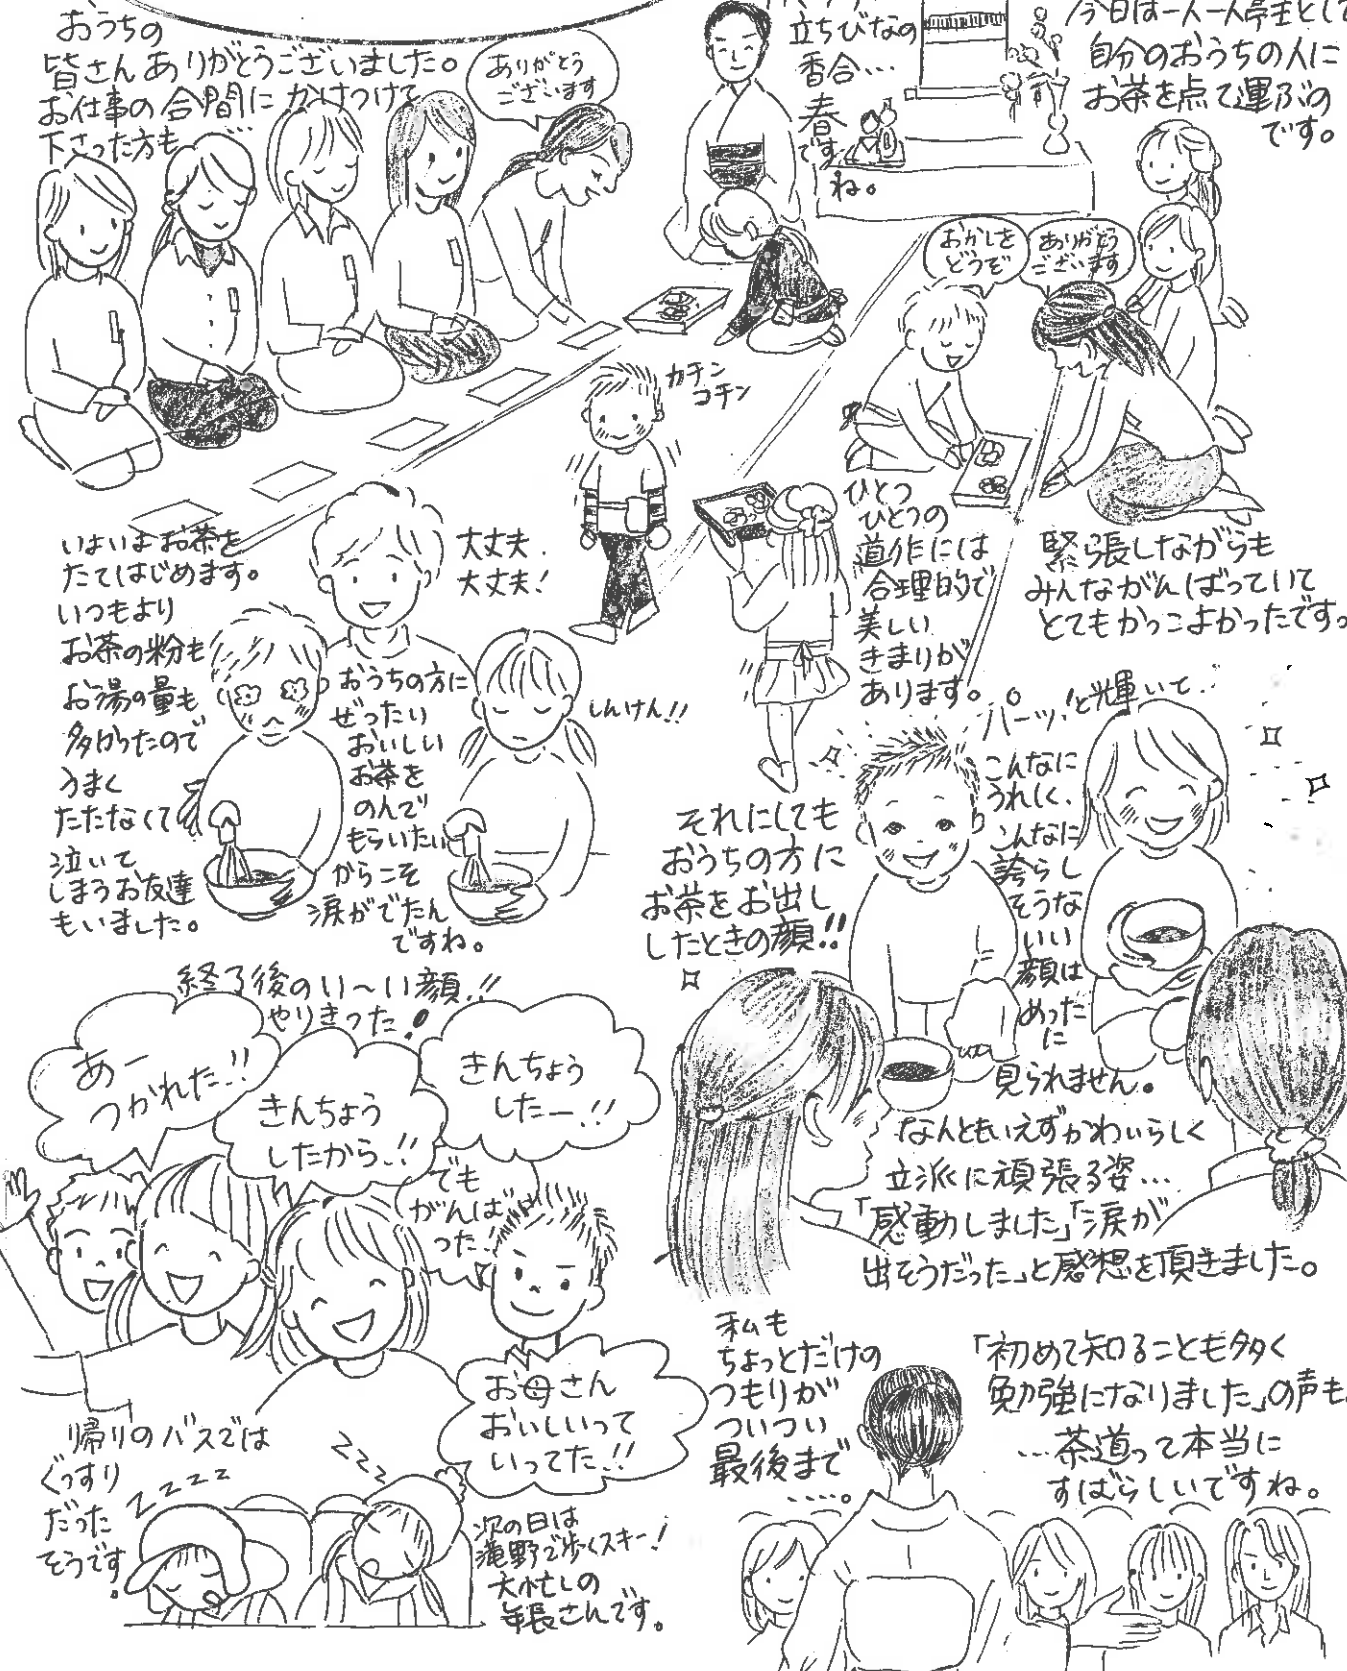 おうちの
皆さんありがとうございました。
お仕事の合間にかけつけて
下さった方も…
ありがとう
ございます
立ちびなの
香合…
春
です
ね。
今日は一人一人亭主として
自分のおうちの人に
お茶を点て運ぶの
です。
おかしを
どうぞ
ありがとう
ございます
カチン
コチン
ひとつ
ひとつの
道作には
合理的で
美しい
きまりが
あります。
緊張しながらも
みんながんばっていて
とてもかっこよかったですっ
いよいよお茶を
たてはじめます。
いつもより
お茶の粉も
お湯の量も
多かったので
うまく
たたなくて
泣いて
しまうお友達
もいました。
大丈夫.
大丈夫!
おうちの方に
ぜったい
おいしい
お茶を
のんで
もらいたい
からこそ
涙がでたん
ですね。
しんけん!!
それにしても
おうちの方に
お茶をお出し
したときの顔!!
パーッ!と輝いて..
こんなに
うれしく、
こんなに
誇らし
そうな
いい
顔は
めった
に
見られません。
なんともいえずかわいらしく
立派に頑張る姿…
「感動しました」「涙が
出そうだった」と感想を頂きました。
終了後のい〜い顔!!
やりきった!
あー
つかれた!!
きんちょう
したから!!
きんちょう
したー!!
でも
がんば
った!
お母さん
おいしいって
いってた!!
帰りのバスでは
ぐっすり
だった
そうです。
zzzz
zzz
次の日は
滝野で歩くスキー!
大忙しの
年長さんです。
私も
ちょっとだけの
つもりが
ついつい
最後まで
....。
「初めて知ることも多く
勉強になりました」の声も
…茶道って本当に
すばらしいですね。